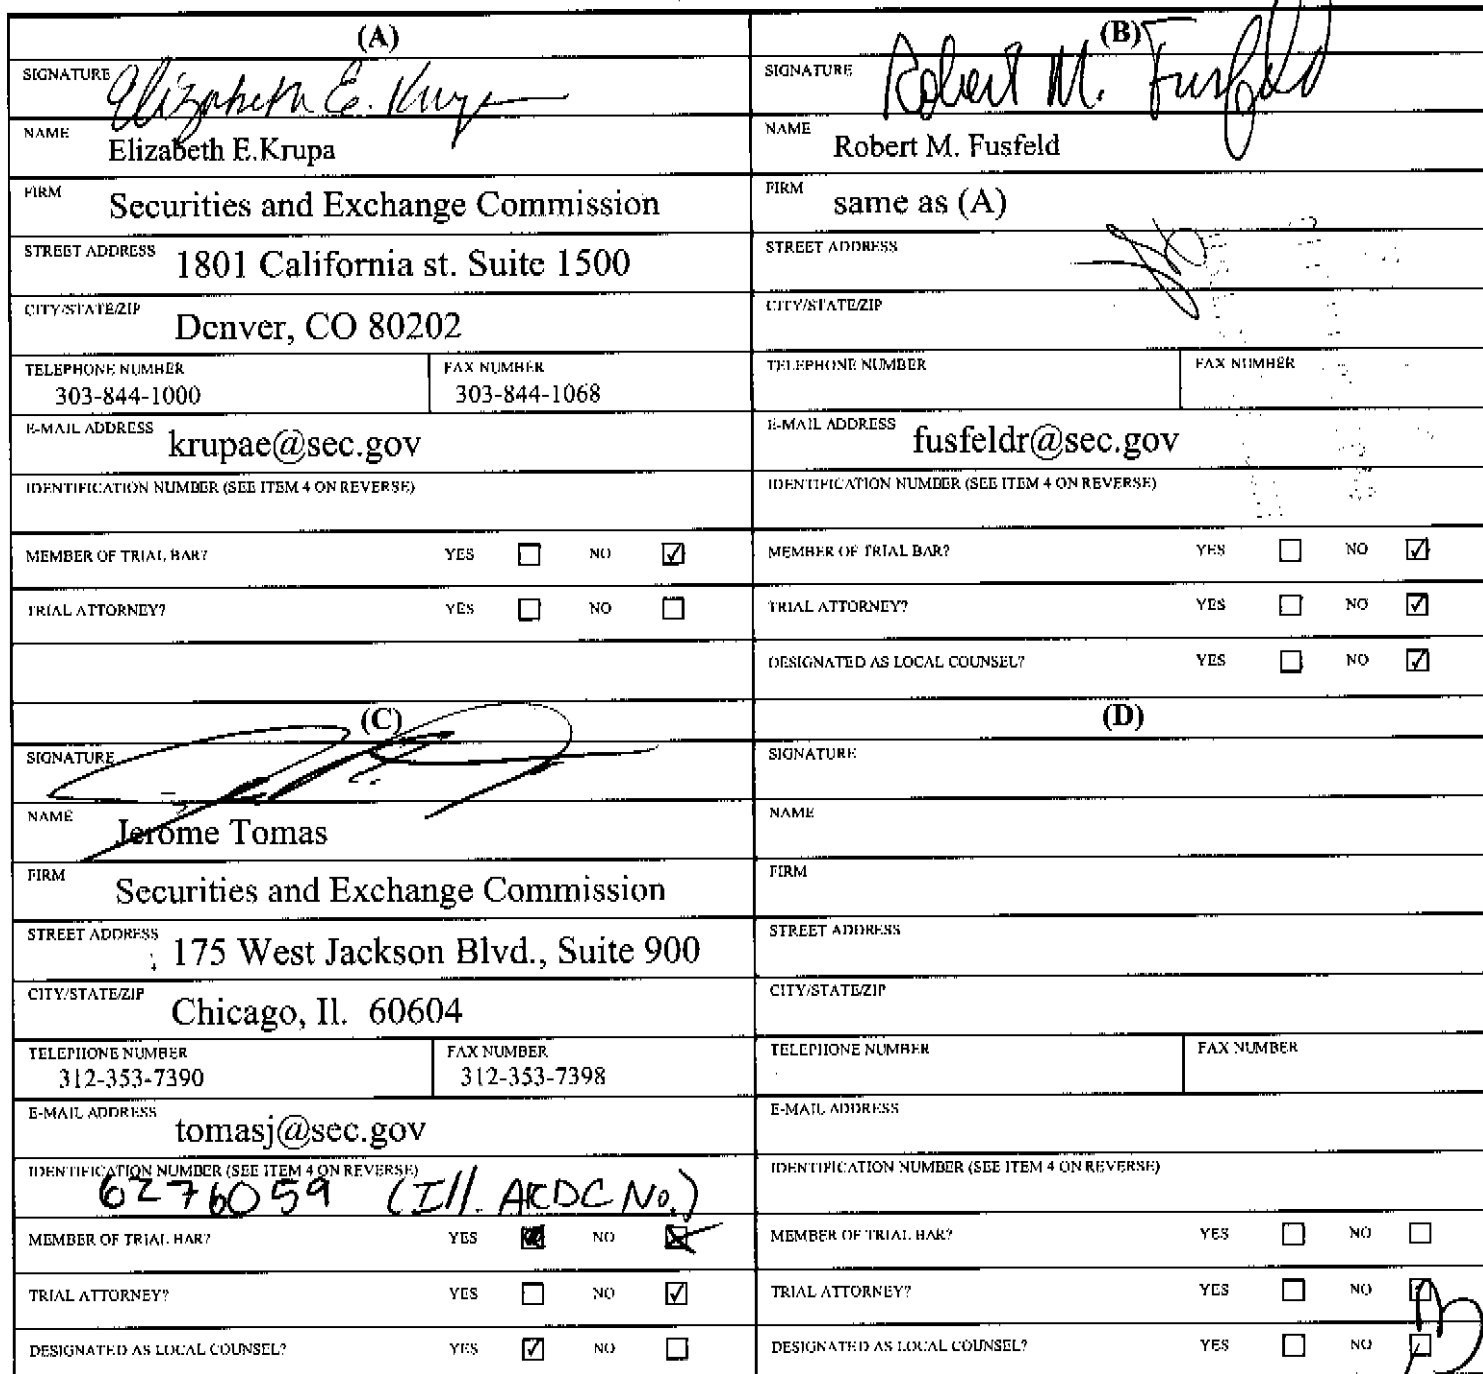 (A)
SIGNATURE Elizabeth E. Krupa
NAME Elizabeth E.Krupa
FIRM Securities and Exchange Commission
STREET ADDRESS 1801 California st. Suite 1500
CITY/STATE/ZIP Denver, CO 80202
TELEPHONE NUMBER FAX NUMBER
303-844-1000 303-844-1068
E-MAIL ADDRESS krupae@sec.gov
IDENTIFICATION NUMBER (SEE ITEM 4 ON REVERSE)
MEMBER OF TRIAL BAR? YES ☐ NO ☑
TRIAL ATTORNEY? YES ☐ NO ☐
(B)
SIGNATURE Robert M. Fusfeld
NAME Robert M. Fusfeld
FIRM same as (A)
STREET ADDRESS
CITY/STATE/ZIP
TELEPHONE NUMBER FAX NUMBER
E-MAIL ADDRESS fusfeldr@sec.gov
IDENTIFICATION NUMBER (SEE ITEM 4 ON REVERSE)
MEMBER OF TRIAL BAR? YES ☐ NO ☑
TRIAL ATTORNEY? YES ☐ NO ☑
DESIGNATED AS LOCAL COUNSEL? YES ☐ NO ☑
(C)
SIGNATURE
NAME Jerome Tomas
FIRM Securities and Exchange Commission
STREET ADDRESS 175 West Jackson Blvd., Suite 900
CITY/STATE/ZIP Chicago, Il. 60604
TELEPHONE NUMBER FAX NUMBER
312-353-7390 312-353-7398
E-MAIL ADDRESS tomasj@sec.gov
IDENTIFICATION NUMBER (SEE ITEM 4 ON REVERSE)
6276059 (Ill. ARDC No.)
MEMBER OF TRIAL BAR? YES ☒ NO ☒
TRIAL ATTORNEY? YES ☐ NO ☑
DESIGNATED AS LOCAL COUNSEL? YES ☑ NO ☐
(D)
SIGNATURE
NAME
FIRM
STREET ADDRESS
CITY/STATE/ZIP
TELEPHONE NUMBER FAX NUMBER
E-MAIL ADDRESS
IDENTIFICATION NUMBER (SEE ITEM 4 ON REVERSE)
MEMBER OF TRIAL BAR? YES ☐ NO ☐
TRIAL ATTORNEY? YES ☐ NO ☑
DESIGNATED AS LOCAL COUNSEL? YES ☐ NO ☐